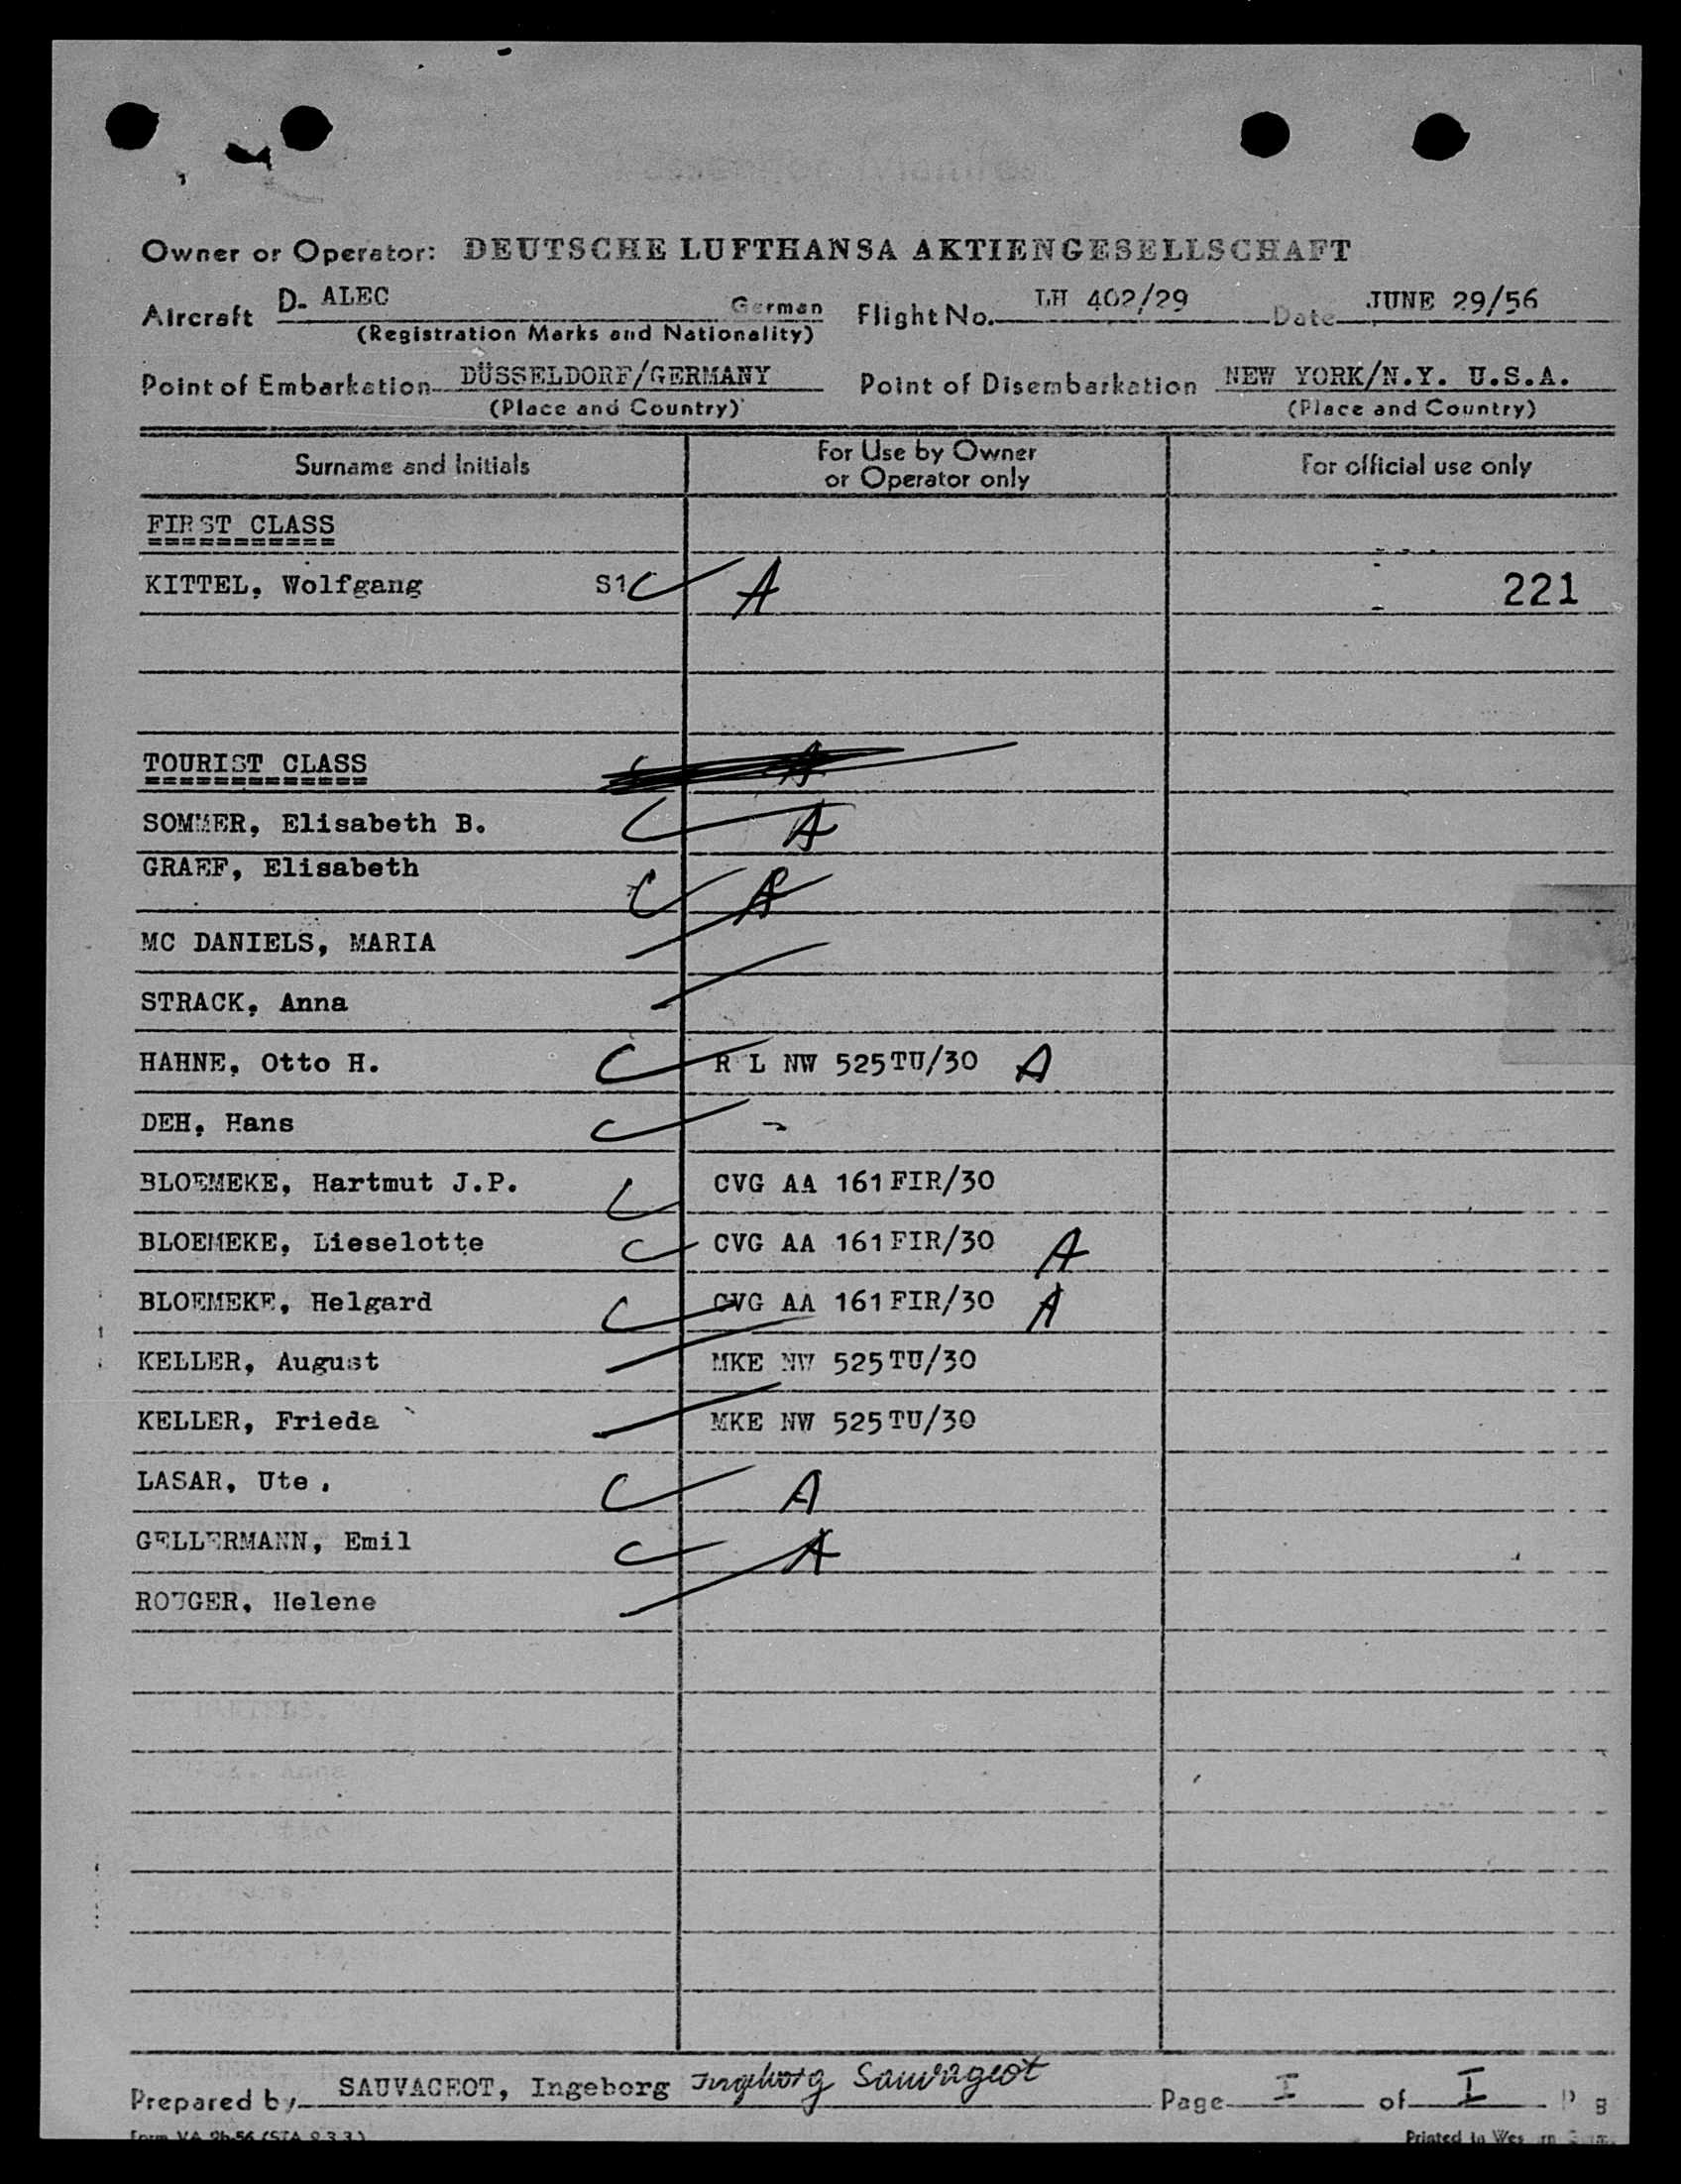 Owner or Operator: DEUTSCHE LUFTHANSA AKTIENGESELLSCHAFT
Aircraft D- ALEC German Flight No. LH 402/29 Date JUNE 29/56
(Registration Marks and Nationality)
Point of Embarkation DÜSSELDORF/GERMANY Point of Disembarkation NEW YORK/N.Y. U.S.A.
(Place and Country) (Place and Country)
Surname and Initials For Use by Owner or Operator only For official use only
FIRST CLASS
KITTEL, Wolfgang S1 A 221
TOURIST CLASS
SOMMER, Elisabeth B. A
GRAEF, Elisabeth A
MC DANIELS, MARIA
STRACK, Anna
HAHNE, Otto H. R L NW 525TU/30 A
DEH, Hans
BLOEMEKE, Hartmut J.P. CVG AA 161FIR/30
BLOEMEKE, Lieselotte CVG AA 161FIR/30 A
BLOEMEKE, Helgard CVG AA 161FIR/30 A
KELLER, August MKE NW 525TU/30
KELLER, Frieda MKE NW 525TU/30
LASAR, Ute. A
GELLERMANN, Emil A
Helene
Prepared by SAUVAGEOT, Ingeborg Ingeborg Sauvageot Page I of I
Printed in